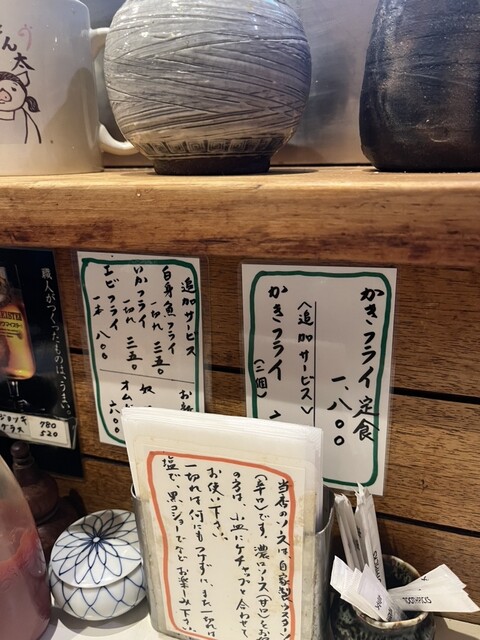 かきフライ定食
一、八〇〇
〈追加サービス〉
かきフライ
(二個)
追加サービス
白身魚フライ
一切れ 三五〇
いかフライ
一切れ 三五〇
エビフライ
一本 八〇〇
お新
オム
六〇〇
職人がつくったものは、うまい。
ジョッキ 780
グラス 520
当店のソースは自家製ウスター
(辛口)です。濃いソース(甘口)をお
の方は、小皿にケチャップと合わせて
お使い下さい。
一切れは何にもつけずに、また一切れは
塩で、黒コショーでなどお楽しみ下さい。
ん太
TOOTHPICKS